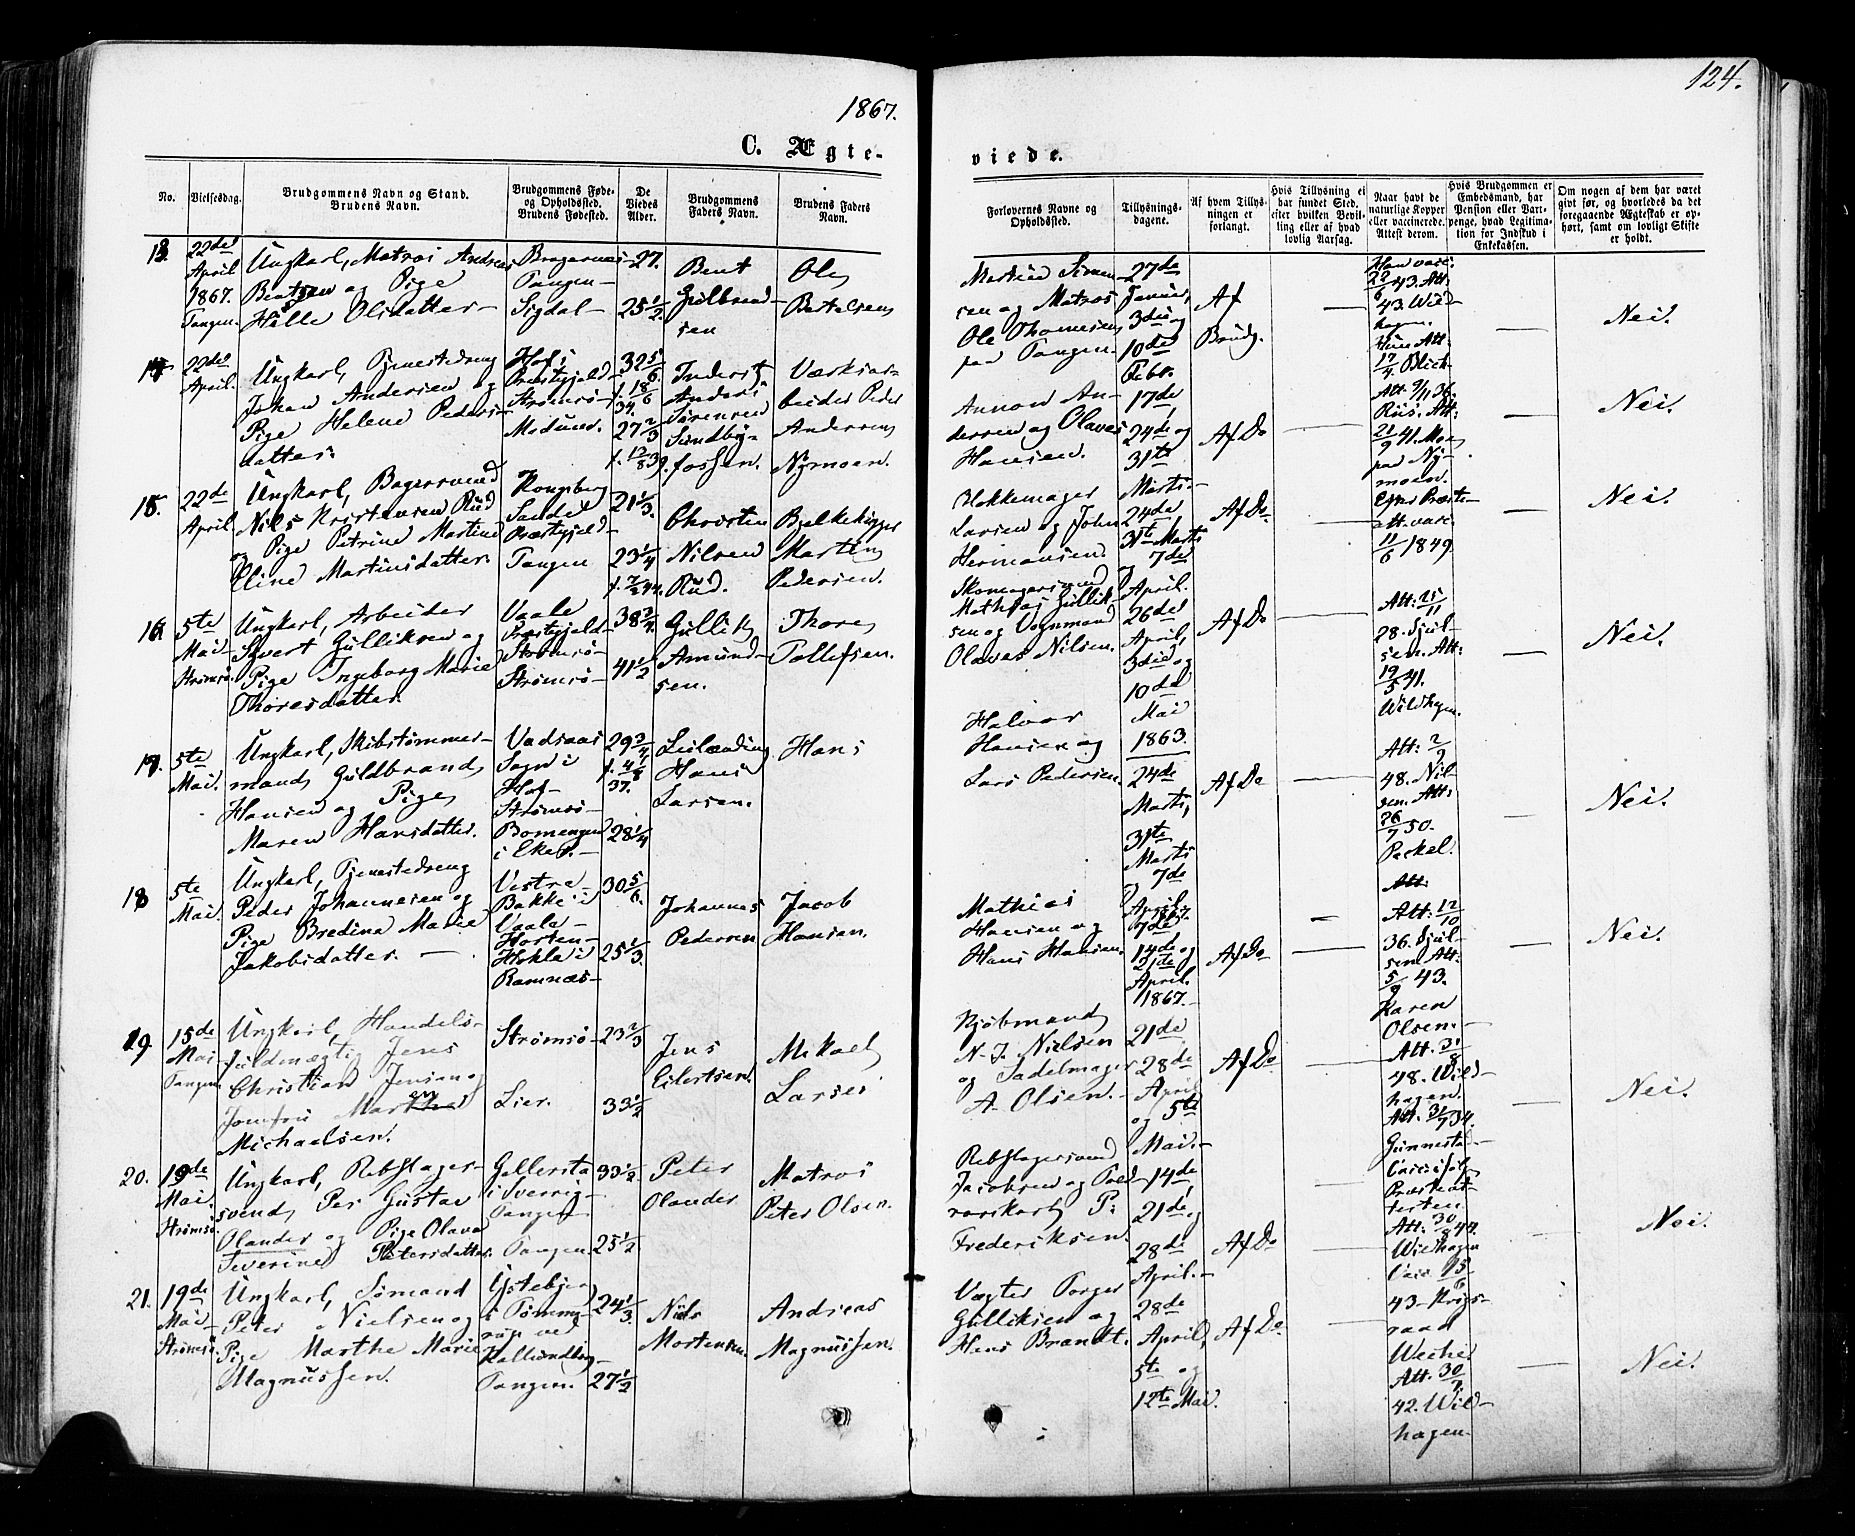 1867.
124.
C. Ægte-
viede.
No.
Vielsesdag.
Brudgommens Navn og Stand.
Brudens Navn.
Brudgommens Føde-
og Opholdssted.
Brudens Fødested.
De
Viedes
Alder.
Brudgommens
Faders Navn.
Brudens Faders
Navn.
Forlovernes Navne og
Opholdssted.
Tillysnings-
dagene.
Af hvem Tillys-
ningen er
forlangt.
Hvis Tillysning ei
har fundet Sted,
efter hvilken Bevil-
ling eller af hvad
lovlig Aarsag.
Naar havt de
naturlige Kopper
eller vaccinerede.
Attest derom.
Hvis Brudgommen er
Embedsmand, har
Pension eller Vart-
penge, hvad Legitima-
tion for Indskud i
Enkekassen.
Om nogen af dem har været
givt før, og hvorledes da det
foregaaende Ægteskab er op-
hørt, samt om lovligt Skifte
er holdt.
13.
22de
April
1867.
Tangen.
Ungkarl, Matros Andreas
Bentsen og Pige
Helle Olsdatter
Bragernes
Tangen
Sigdal
27.
25 1/2
Bent
Gulbrand-
sen
Ole
Bertelsen
Martin Simen-
sen og Matros
Ole Thomesen
paa Tangen.
27de
Januar,
3die og
10de
Febr.
Af
Brudg.
Nei.
22de
April.
Ungkarl, Tjenestedreng
Johan Andersen og
Pige Helene Peders-
datter.
Hofs
Præstegjeld
Strømsø
Modum.
32 5/6
f. 18/6
34.
27 2/3
f. 12/8 39.
Anders
Sørensen
Sundby-
fossen.
Værksar-
beider Peder
Andersen
Nymoen.
Annon An-
dersen og Olaves
Hansen.
17de
24de og
31te
Marts.
Af Do
Nei.
15.
22de
April.
Ungkarl, Bagersvend
Nils Kristensen Rud
og Pige Petrine Martine
Eline Martinsdatter.
Kongsberg
Sande
Præstegjeld
Tangen
21 1/3.
23 1/4
f. 7/2 44.
Christen
Nilsen
Rud.
Bjelkehugger
Martin
Pedersen.
Blokkemager
Larsen og John
Hermansen.
24de
31te Marts
7de
April.
Af Do
att. vacc.
11/6 1849.
Nei.
16.
5te
Mai.
Strømsø.
Ungkarl, Arbeider
Syvert Gulliksen og
Pige Ingeborg Marie
Thoresdatter.
Vaale
Præstegjeld
Strømsø
Strømsø
38 3/4.
41 1/2
Gullik
Amund-
sen.
Thore
Tollefsen.
Skomagersvend
Mathias Gullik-
sen og Vognmand
Olaves Nilsen.
26de
April,
3die og
10de
Mai
1863.
Af Do
Att: 25/11
28. Sjul-
sen. Att:
19/5 41.
Wildhgen.
Nei.
17.
5te
Mai.
Ungkarl, Skibstømmer-
mand Guldbrand
Hansen og Pige
Maren Hansdatter.
Vadsaas
Sogn i
Hof
Strømsø
Bomengen
i Eker.
29 3/4
f. 4/8
37.
28 1/4
Leilænding
Hans
Larsen.
Hans
Halvor
Hansen og
Lars Pedersen.
24de
Marts,
31te
Marts
7de
April.
1867.
Af Do
Att: 2/9
48. Nil-
sen. Att:
26/7 50.
Peckel.
Att:
Nei.
18
5te
Mai.
Ungkarl, Tjenestedreng
Peder Johannesen og
Pige Bredina Marie
Jakobsdatter.
Vestre
Bakke i
Vaale
Horten
Hekla i
Ramnæs
30 5/6.
25 1/3.
Johannes
Pedersen
Jacob
Hansen.
Mathias
Hansen og
Hans Hansen.
7de
14de og
21de
April.
1867.
Af Do
Att: 12/10
36. Sjul-
sen Att:
5/9 43.
Karen
Olsen.
Nei.
19
15de
Mai
Tangen.
Ungkarl, Handels-
fuldmægtig Jens
Christian Jensen og
Jomfru Maren
Michaelsen.
Strømsø
Lier.
23 2/3
33 1/2
Jens
Eilertsen.
Mikael
Larsen
Kjøbmand
N. J. Nielsen
og Sadelmager
A. Olsen.
21de
28de
April
og 5te
Mai.
Af Do
Att. 31/8
48. Wild-
hagen.
Att. 31/7 34.
Gunnestad
Nei.
20.
19de
Mai
Strømsø
Ungkarl, Rebslager-
svend Per Gustav
Olander og Pige Olava
Severine Petersdatter.
Gellersta
i Sverrig
Tangen.
Tangen.
33 1/2
25 1/2
Peter
Olander
Matros
Peter Olsen.
Rebslagersvend
Jacobsen og Told-
roerskarl P:
Frederiksen.
14de
21de og
28de
April.
Af Do
Att: 30/8 44.
Wildhagen
Nei.
21.
19de
Mai
Strømsø.
Ungkarl, Sømand
Peter Nielsen og
Pige Marthe Marie
Magnussen.
Østebjerg
i Tømme-
rup ved
Kallundborg
Tangen.
24 1/3
27 1/2
Niels
Mortensen.
Andreas
Magnussen.
Vægter Torger
Gulliksen og
Hans Brandt.
28de
April,
5te og
12te Mai.
Af Do
43. Krigs-
raad
Att: 30/7
42. Wild-
hagen.
Nei.